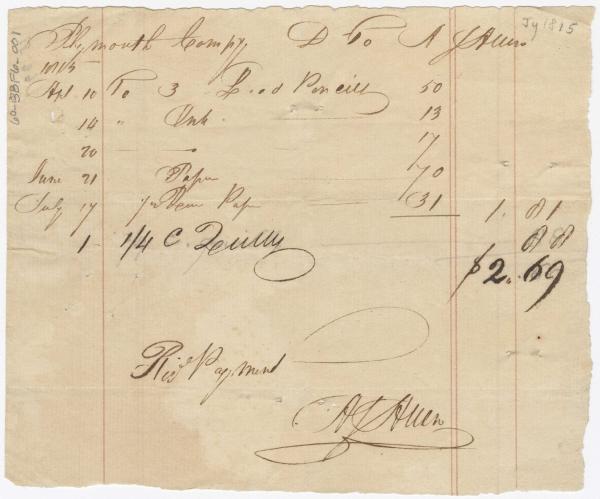 Jy 1815
60-3BF6-001
Plymouth Compy D To A J Allen
1815
Apl 10 To 3 Lead Pencills 50
14 " Ink 13
20 — 17
June 21 Paper 70
July 17 Paper 31 1. 81
1 1/4 C. Quills 88
$2. 69
Recd Payment
A J Allen